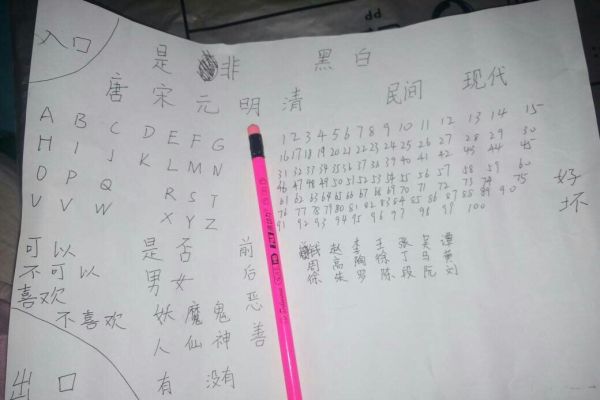 入口
是 非 黑 白
唐 宋 元 明 清 民间 现代
A B C D E F G
H I J K L M N
O P Q R S T
U V W X Y Z
1 2 3 4 5 6 7 8 9 10 11 12 13 14 15
16 17 18 19 20 21 22 23 24 25 26 27 28 29 30
31 32 33 34 35 36 37 38 39 40 41 42 43 44 45
46 47 48 49 50 51 52 53 54 55 56 57 58 59 60
61 62 63 64 65 66 67 68 69 70 71 72 73 74 75
76 77 78 79 80 81 82 83 84 85 86 87 88 89 90
91 92 93 94 95 96 97 98 99 100
好
坏
可以 是否 前
不可以 男女 后
喜欢 妖魔鬼 恶
不喜欢 人仙神 善
钱 赵 李 王 张 吴 谭
周 高 陶 徐 丁 马 黄
徐 朱 罗 陈 段 阮 刘
出口 有 没有